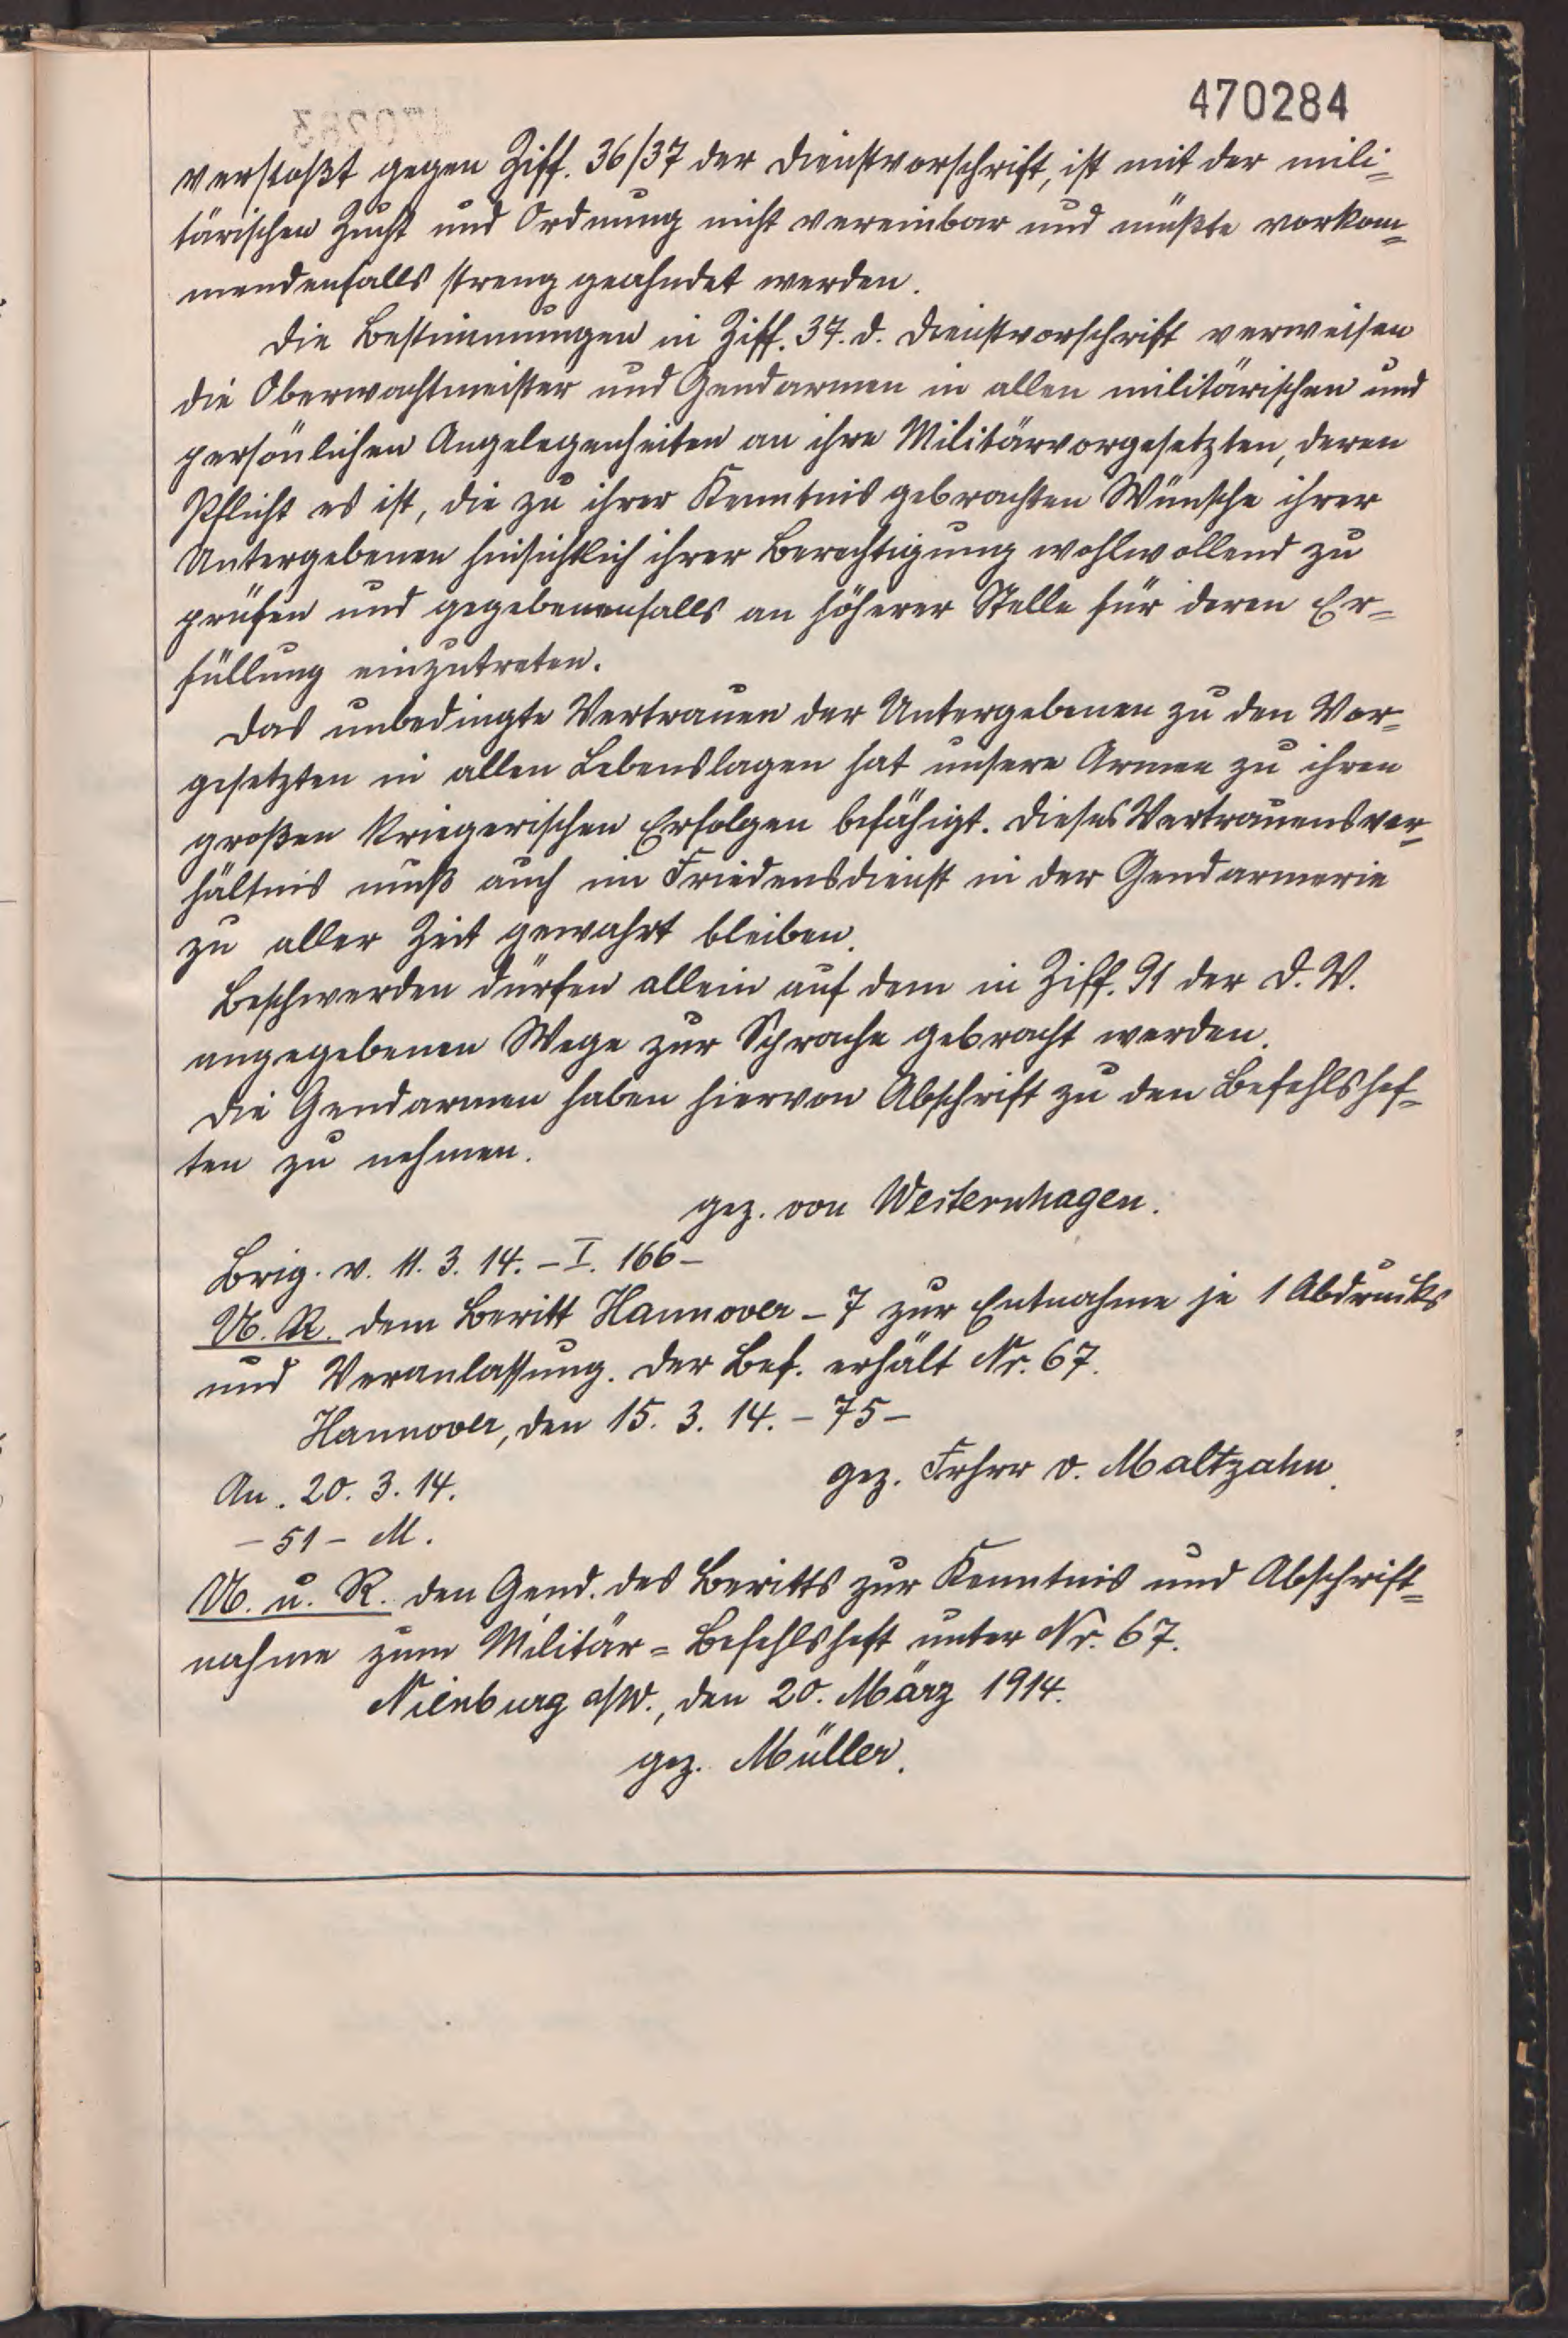 470284
verstoßt gegen Ziff. 36/37 der Dienstvorschrift, ist mit der mili-
tärischen Zucht und Ordnung nicht vereinbar und müßte vorkom-
mendenfalls streng geahndet werden.
Die Bestimmungen in Ziff. 37. d. Dienstvorschrift verweisen
die Oberwachtmeister und Gendarmen in allen militärischen und
persönlichen Angelegenheiten an ihre Militärvorgesetzten, deren
Pflicht es ist, die zu ihrer Kenntnis gebrachten Wünsche ihrer
Untergebenen hinsichtlich ihrer Berechtigung wohlwollend zu
prüfen und gegebenenfalls an höherer Stelle für deren Er-
füllung einzutreten.
Das unbedingte Vertrauen der Untergebenen zu den Vor-
gesetzten in allen Lebenslagen hat unsere Armee zu ihren
großen kriegerischen Erfolgen befähigt. Dieses Vertrauensver-
hältnis muß auch im Friedensdienst in der Gendarmerie
zu aller Zeit gewahrt bleiben.
Beschwerden dürfen allein auf dem in Ziff. 91 der D. V.
angegebenen Wege zur Sprache gebracht werden.
Die Gendarmen haben hiervon Abschrift zu den Befehlshef-
ten zu nehmen.
gez. von Westernhagen.
Brig. v. 11. 3. 14. – I. 166 –
U. R. dem Beritt Hannover – 7 zur Entnahme je 1 Abdrucks
und Veranlassung. Der Bef. erhält Nr. 67.
Hannover, den 15. 3. 14. – 75 –
gez. Frhrr v. Maltzahn.
An. 20. 3. 14.
– 51 – M.
U. u. R. den Gend. des Beritts zur Kenntnis und Abschrift-
nahme zum Militär-Befehlsheft unter Nr. 67.
Nienburg a/W., den 20. März 1914.
gez. Müller.